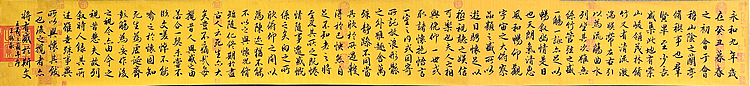 永和九年歲
在癸丑暮春
之初會于會
稽山陰之蘭亭
脩稧事也羣
賢畢至少長
咸集此地有崇
山峻領茂林脩
竹又有清流激
湍暎帶左右引
以為流觴曲水
列坐其次雖無
絲竹管弦之盛
一觴一詠亦足以
暢敘幽情是日
也天朗氣清惠
風和暢仰觀
宇宙之大俯察
品類之盛所以
遊目騁懷足以
極視聽之娛信
可樂也夫人之相
與俯仰一世或
取諸懷抱悟言
一室之內或因寄
所託放浪形骸
之外雖趣舍萬
殊靜躁不同當
其欣於所遇暫
得於己快然自
足不知老之將
至及其所之既惓
情隨事遷感慨
係之矣向之所
欣俛仰之間以
為陳迹猶不
能不以之興懷況脩
短隨化終期於盡
古人云死生亦大
矣豈不痛哉每
攬昔人興感之由
若合一契未嘗不
臨文嗟悼不能
喻之於懷固知
一死生為虛誕齊
彭殤為妄作後
之視今亦由今之
視昔悲夫故列
敘時人錄其所
述雖世殊事異
所以興懷其致
一也後之攬者亦
將有感於斯文